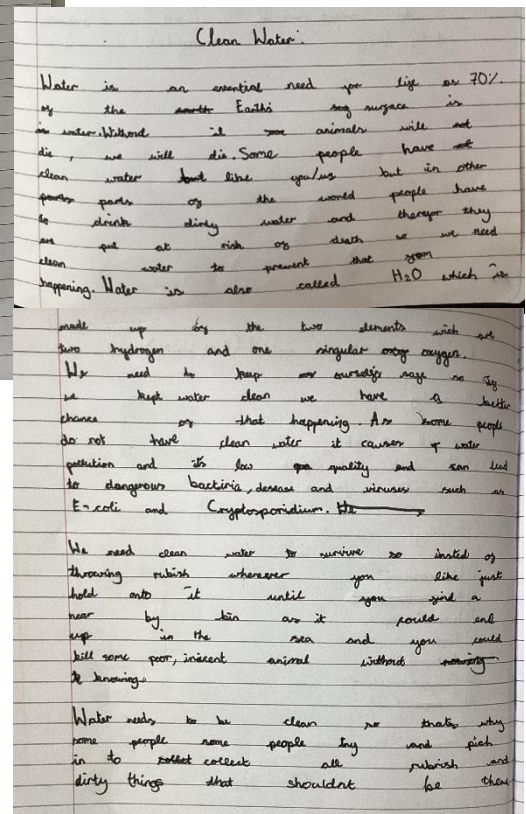 Clean Water.
Water is an essential need for life as 70%
of the earth Earths surface is
is water. Without it animals will not
die, we will die. Some people have not
clean water but like you/us but in other
parts of the world people have
to drink dirty water and therefor they
are put at risk of death so we need
clean water to prevent that from
happening. Water is also called H2O which is
made up by the two elements wich are
two hydrogen and one singular oxy oxygen.
We need to keep ourselfs safe so if
we kept water clean we have a better
chance of that happening. As some people
do not have clean water it causes water
pollution and its low quality and can lead
to dangerous bactiria, desease and viruses such as
E-coli and Cryptosporidium. He
We need clean water to survive so insted of
throwing rubish whereever you like just
hold onto it until you find a
near by bin as it could end
up in the sea and you could
kill some poor, inacent animal without nowing
knowing.
Water needs to be clean so thats why
some people some people try and pich
in to collect collect all rubrish and
dirty things that shouldnt be there